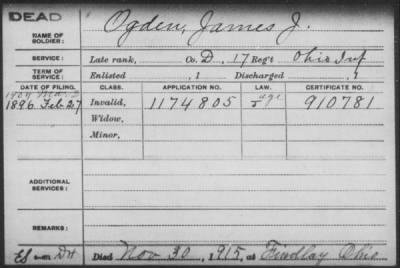 DEAD
NAME OF SOLDIER: Ogden, James J.
SERVICE: Late rank, Co. D, 17 Reg't Ohio Inf
TERM OF SERVICE: Enlisted , 1 Discharged , 1
DATE OF FILING. CLASS. APPLICATION NO. LAW. CERTIFICATE NO.
1896 Feb 27 Invalid, 1174805 age 910781
Widow,
Minor,
ADDITIONAL SERVICES:
REMARKS:
Died Nov 30, 1915, at Findlay Ohio